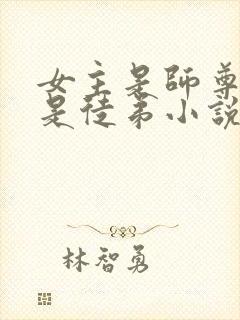 女主是師尊
是徒弟小說
林智勇